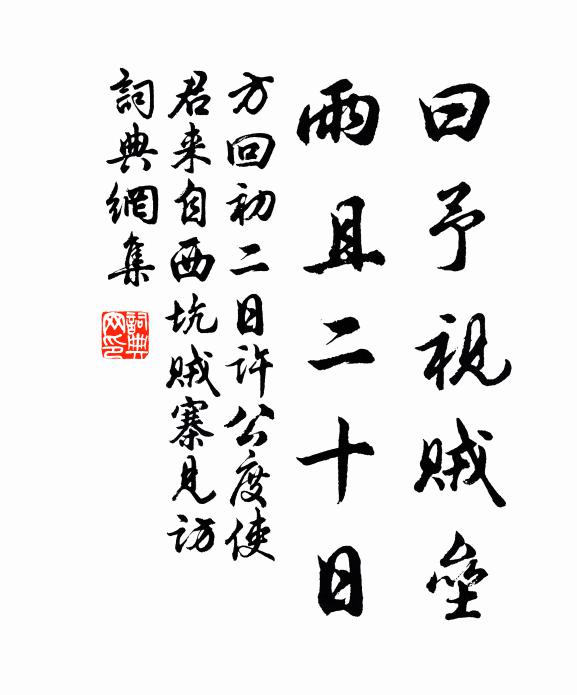 曰予視賊壘
雨且二十日
方回初二日許公度使
君来自西坑賊寨見访
詞典網集